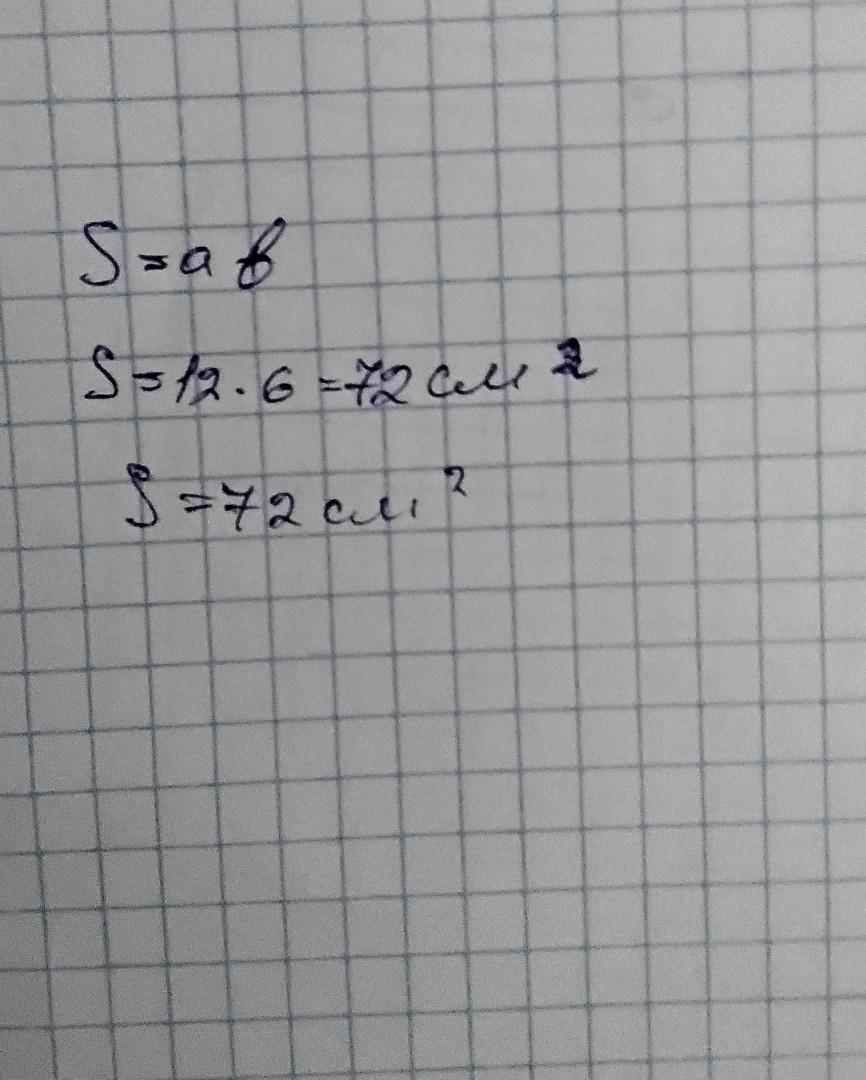 S = a b
S = 12 · 6 = 72 см²
S = 72 см²